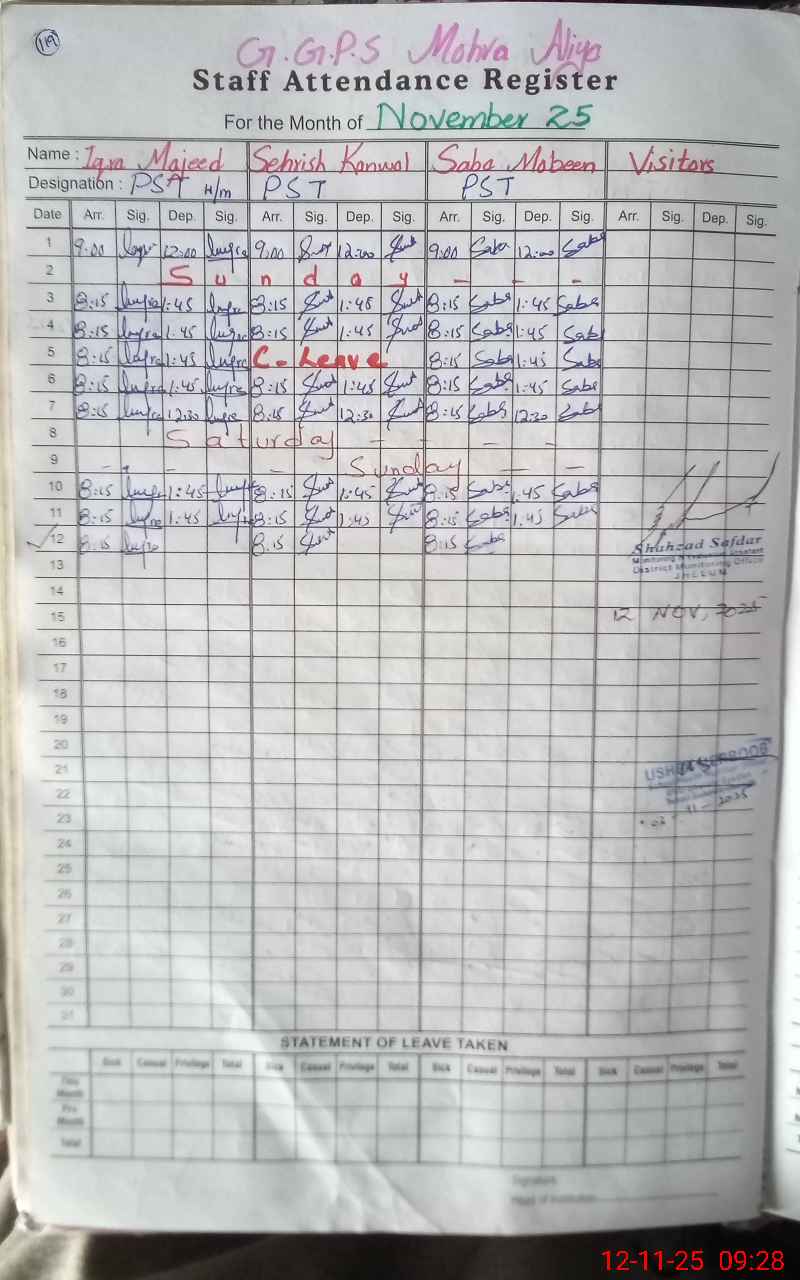 119
G.G.P.S Mohra Aliya
Staff Attendance Register
For the Month of November 25
Name : Iqra Majeed Sehrish Kanwal Saba Mabeen Visitors
Designation : PST H/m PST PST
Date Arr. Sig. Dep. Sig. Arr. Sig. Dep. Sig. Arr. Sig. Dep. Sig. Arr. Sig. Dep. Sig.
1 9:00 Iqra 12:00 Iqra 9:00 12:00 9:00 Saba 12:00 Saba
2 Sunday - - -
3 8:15 Iqra 1:45 Iqra 8:15 1:45 8:15 Saba 1:45 Saba
4 8:15 Iqra 1:45 Iqra 8:15 1:45 8:15 Saba 1:45 Saba
5 8:15 Iqra 1:45 Iqra C-Leave 8:15 Saba 1:45 Saba
6 8:15 Iqra 1:45 Iqra 8:15 1:45 8:15 Saba 1:45 Saba
7 8:15 Iqra 12:30 Iqra 8:15 12:30 8:15 Saba 12:30 Saba
8 Saturday - - - -
9 - - - - Sunday - -
10 8:15 Iqra 1:45 Iqra 8:15 1:45 8:15 Saba 1:45 Saba
11 8:15 Iqra 1:45 Iqra 8:15 1:45 8:15 Saba 1:45 Saba
12 8:15 Iqra 8:15 8:15 Saba
Shahzad Safdar
District Monitoring Office
JHELUM
13
14
15
12 NOV, 2025
16
17
18
19
20
21
22
23
02-11-2025
24
25
26
27
28
29
30
31
STATEMENT OF LEAVE TAKEN
Sick Casual Privilege Total Sick Casual Privilege Total Sick Casual Privilege Total Sick Casual Privilege Total
This Month
Pre Month
Total
Signature
Head of Institution
12-11-25 09:28